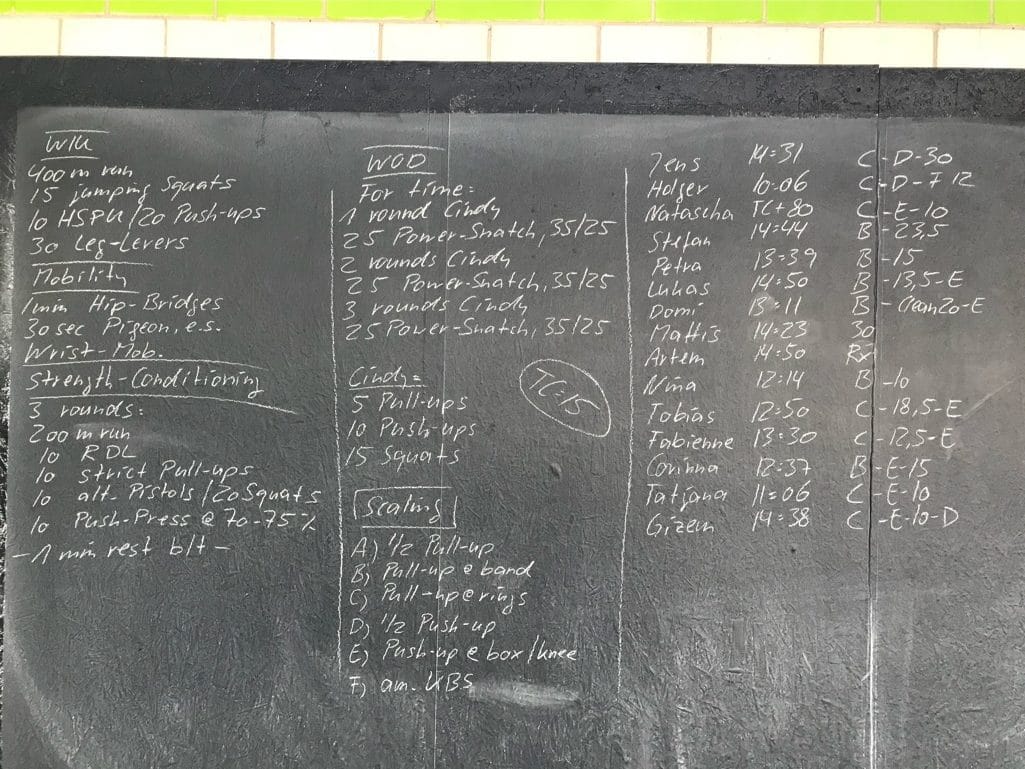 WU
400 m run
15 jumping Squats
10 HSPU / 20 Push-ups
30 Leg-Levers
Mobility
1min Hip-Bridges
30 sec Pigeon, e.s.
Wrist-Mob.
Strength-Conditioning
3 rounds:
200 m run
10 RDL
10 strict Pull-ups
10 alt. Pistols / 20 Squats
10 Push-Press @ 70-75%
- 1 min rest b/t -
WOD
For time:
1 round Cindy
25 Power-Snatch, 35/25
2 rounds Cindy
25 Power-Snatch, 35/25
3 rounds Cindy
25 Power-Snatch, 35/25
TC=15
Cindy=
5 Pull-ups
10 Push-ups
15 Squats
Scaling
A) 1/2 Pull-up
B) Pull-up @ band
C) Pull-up @ rings
D) 1/2 Push-up
E) Push-up @ box / knee
F) am. KBS
Jens 14:31 C-D-30
Holger 10:06 C-D-F 12
Natascha TC+80 C-E-10
Stefan 14:44 B-23,5
Petra 13:39 B-15
Lukas 14:50 B-13,5-E
Domi 13:11 B-Clean20-E
Mattis 14:23 30
Artem 14:50 Rx
Nina 12:14 B-10
Tobias 12:50 C-18,5-E
Fabienne 13:30 C-12,5-E
Corinna 12:37 B-E-15
Tatjana 11:06 C-E-10
Gizem 14:38 C-E-10-D